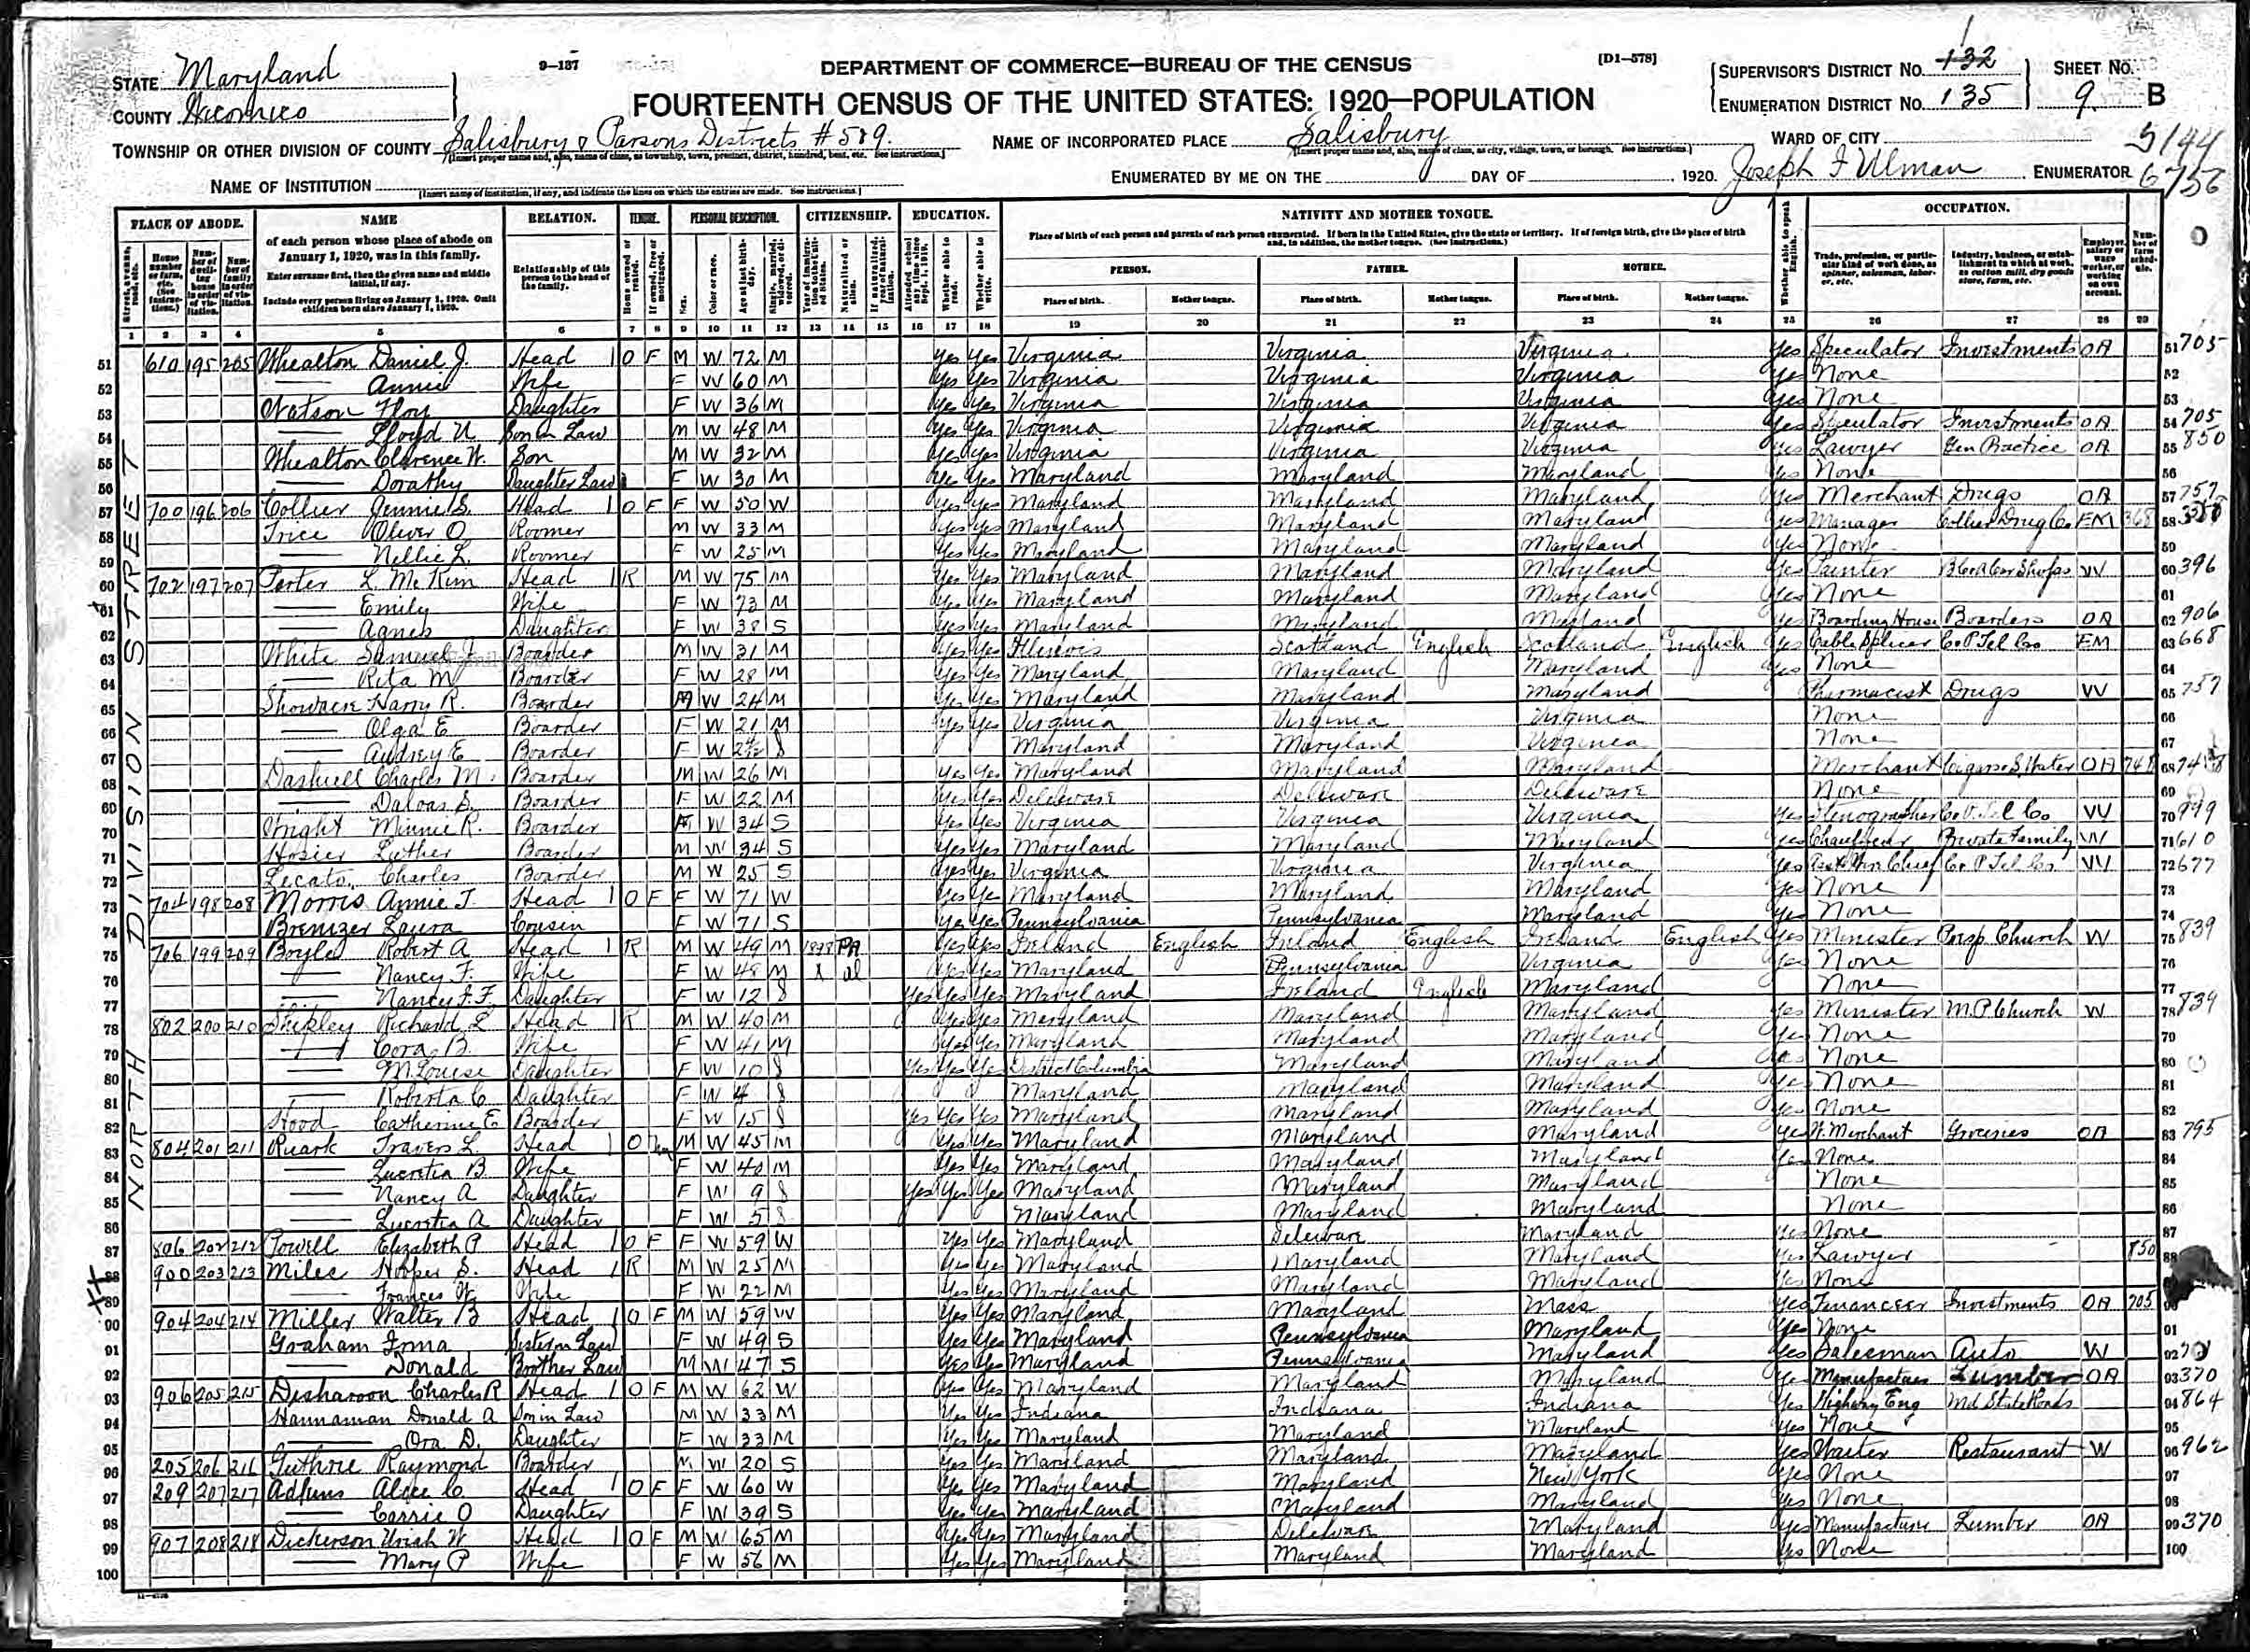 9—137
DEPARTMENT OF COMMERCE—BUREAU OF THE CENSUS
[D1—578]
STATE Maryland
COUNTY Wicomico
FOURTEENTH CENSUS OF THE UNITED STATES: 1920—POPULATION
SUPERVISOR'S DISTRICT NO. 132
ENUMERATION DISTRICT NO. 135
SHEET NO. 9 B
TOWNSHIP OR OTHER DIVISION OF COUNTY Salisbury & Parsons Districts #5&9.
NAME OF INCORPORATED PLACE Salisbury
WARD OF CITY
5144
NAME OF INSTITUTION
ENUMERATED BY ME ON THE DAY OF , 1920. Joseph F Ulman ENUMERATOR
6756
PLACE OF ABODE. NAME RELATION. TENURE. PERSONAL DESCRIPTION. CITIZENSHIP. EDUCATION. NATIVITY AND MOTHER TONGUE. OCCUPATION.
of each person whose place of abode on January 1, 1920, was in this family.
Enter surname first, then the given name and middle initial, if any.
Include every person living on January 1, 1920. Omit children born since January 1, 1920.
Relationship of this person to the head of the family.
Place of birth of each person and parents of each person enumerated. If born in the United States, give the state or territory. If of foreign birth, give the place of birth and, in addition, the mother tongue. (See instructions.)
PERSON. FATHER. MOTHER.
Place of birth. Mother tongue. Place of birth. Mother tongue. Place of birth. Mother tongue.
1 2 3 4 5 6 7 8 9 10 11 12 13 14 15 16 17 18 19 20 21 22 23 24 25 26 27 28 29
NORTH DIVISION STREET
51 610 195 205 Whealton Daniel J. Head 1 O F M W 72 M Yes Yes Virginia Virginia Virginia Yes Speculator Investments OA 51 705
52 —— Annie Wife F W 60 M Yes Yes Virginia Virginia Virginia Yes None 52
53 Watson Floy Daughter F W 36 M Yes Yes Virginia Virginia Virginia Yes None 53
54 —— Lloyd N Son in Law M W 48 M Yes Yes Virginia Virginia Virginia Yes Speculator Investments OA 54 705
55 Whealton Clarence W. Son M W 32 M Yes Yes Virginia Virginia Virginia Yes Lawyer Gen Practice OA 55 850
56 —— Dorathy Daughter Law F W 30 M Yes Yes Maryland Maryland Maryland Yes None 56
57 700 196 206 Collier Jennie S. Head 1 O F F W 50 W Yes Yes Maryland Maryland Maryland Yes Merchant Drugs OA 57 757
58 Trice Oliver O Roomer M W 33 M Yes Yes Maryland Maryland Maryland Yes Manager Collier Drug Co EM 368 58
59 —— Nellie L. Roomer F W 25 M Yes Yes Maryland Maryland Maryland Yes None 59
60 702 197 207 Porter L. McKim Head 1 R M W 75 M Yes Yes Maryland Maryland Maryland Yes Painter Car Shops W 60 396
61 —— Emily Wife F W 73 M Yes Yes Maryland Maryland Maryland Yes None 61
62 —— Agnes Daughter F W 38 S Yes Yes Maryland Maryland Maryland Yes Boarding House Boarders OA 62 906
63 White Samuel J Boarder M W 31 M Yes Yes Illinois Scotland English Scotland English Yes Cable Splicer C&P Tel Co EM 63 668
64 —— Rita M Boarder F W 28 M Yes Yes Maryland Maryland Maryland Yes None 64
65 Showacre Harry R. Boarder M W 24 M Yes Yes Maryland Maryland Maryland Pharmacist Drugs W 65 757
66 —— Olga E Boarder F W 21 M Yes Yes Virginia Virginia Virginia None 66
67 —— Audrey E Boarder F W S Maryland Maryland Virginia None 67
68 Dashiell Charles M. Boarder M W 26 M Yes Yes Maryland Maryland Maryland Merchant Cigars S. Water OA 748 68
69 —— Boarder F W 22 M Yes Yes Deleware Deleware Deleware None 69
70 Wright Minnie R. Boarder F W 34 S Yes Yes Virginia Virginia Virginia Yes Stenographer C&P Tel Co W 70
71 Hosier Luther Boarder M W 34 S Yes Yes Maryland Maryland Maryland Yes Chauffeur Private Family W 71 610
72 Lecato Charles Boarder M W 25 S Yes Yes Virginia Virginia Virginia Yes Wire Chief C&P Tel Co W 72 677
73 704 198 208 Morris Annie T. Head 1 O F F W 71 W Yes Yes Maryland Maryland Maryland Yes None 73
74 Brenizer Laura Cousin F W 71 S Yes Yes Pennsylvania Pennsylvania Maryland Yes None 74
75 706 199 209 Boyle Robert A Head 1 R M W 49 M 1898 PA Yes Yes Ireland English Ireland English Ireland English Yes Minister Persp. Church W 75 839
76 —— Nancy F. Wife F W 48 M X al Yes Yes Maryland Pennsylvania Virginia Yes None 76
77 —— Nancy F. F. Daughter F W 12 S Yes Yes Yes Maryland Ireland English Maryland None 77
78 802 200 210 Shipley Richard L Head 1 R M W 40 M Yes Yes Maryland Maryland Maryland Yes Minister M.P. Church W 78 839
79 —— Cora B. Wife F W 41 M Yes Yes Maryland Maryland Maryland Yes None 79
80 —— M. Louise Daughter F W 10 S Yes Yes Yes District Columbia Maryland Maryland Yes None 80
81 —— Roberta C Daughter F W 4 S Maryland Maryland Maryland Yes None 81
82 Hood Catherine E Boarder F W 15 S Yes Yes Yes Maryland Maryland Maryland Yes None 82
83 804 201 211 Ruark Travers L. Head 1 O M W 45 M Yes Yes Maryland Maryland Maryland Yes W. Merchant Groceries OA 83 795
84 —— Lucretia B Wife F W 40 M Yes Yes Maryland Maryland Maryland Yes None 84
85 —— Nancy A Daughter F W 9 S Yes Yes Yes Maryland Maryland Maryland None 85
86 —— Lucretia A Daughter F W 5 S Maryland Maryland Maryland None 86
87 806 202 212 Powell Elizabeth P Head 1 O F F W 59 W Yes Yes Maryland Deleware Maryland Yes None 87
88 900 203 213 Miles Hooper S. Head 1 R M W 25 M Yes Yes Maryland Maryland Maryland Yes Lawyer 850 88
89 —— Frances W. Wife F W 22 M Yes Yes Maryland Maryland Maryland Yes None
90 904 204 214 Miller Walter B Head 1 O F M W 59 W Yes Yes Maryland Maryland Mass Yes Financeer Investments OA 705
91 Graham Irma Sister in Law F W 49 S Yes Yes Maryland Pennsylvania Maryland Yes None 91
92 —— Donald Boother Law M W 47 S Yes Yes Maryland Pennsylvania Maryland Yes Salesman Auto W 92
93 906 205 215 Disharoon Charles R Head 1 O F M W 62 W Yes Yes Maryland Maryland Maryland Yes Manufacture Lumber OA 93 370
94 Hannaman Donald A Son in Law M W 33 M Yes Yes Indiana Indiana Indiana Yes Highway Eng Md State Roads 94 864
95 —— Ora D. Daughter F W 33 M Yes Yes Maryland Maryland Maryland Yes None 95
96 205 206 216 Guthrie Raymond Boarder M W 20 S Yes Yes Maryland Maryland Maryland Yes Waiter Restaurant W 96 962
97 209 207 217 Adkins Alice C. Head 1 O F F W 60 W Yes Yes Maryland Maryland New York Yes None 97
98 —— Carrie O Daughter F W 39 S Yes Yes Maryland Maryland Maryland Yes None 98
99 907 208 218 Dickerson Uriah W Head 1 O F M W 65 M Yes Yes Maryland Deleware Maryland Yes Manufacture Lumber OA 99 370
100 —— Mary P Wife F W 56 M Yes Yes Maryland Maryland Maryland Yes None 100